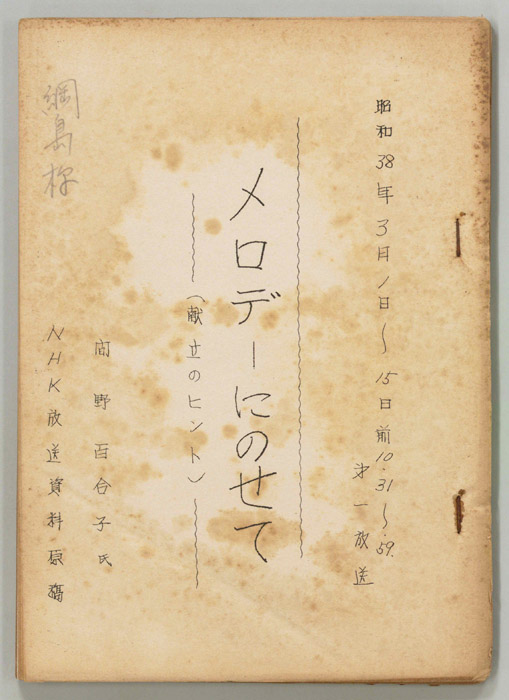 昭和38年3月1日〜15日前10.31〜.59.
第一放送
メロデーにのせて
(献立のヒント)
間野百合子氏
NHK放送資料原稿
綱島様